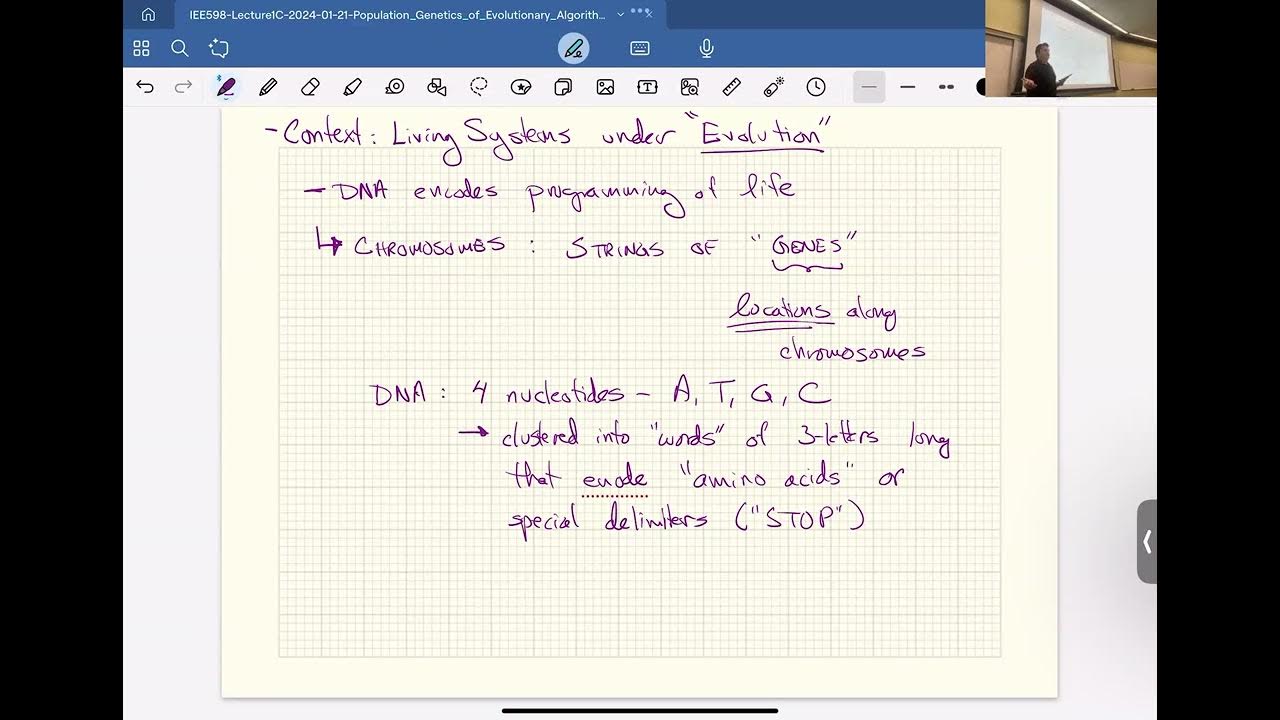 IEE598-Lecture1C-2024-01-21-Population_Genetics_of_Evolutionary_Algorith...
- Context: Living Systems under "Evolution"
- DNA encodes programming of life
↳ CHROMOSOMES: STRINGS OF "GENES"
locations along
chromosomes
DNA: 4 nucleotides - A, T, G, C
→ clustered into "words" of 3-letters long
that encode "amino acids" or
special delimiters ("STOP")